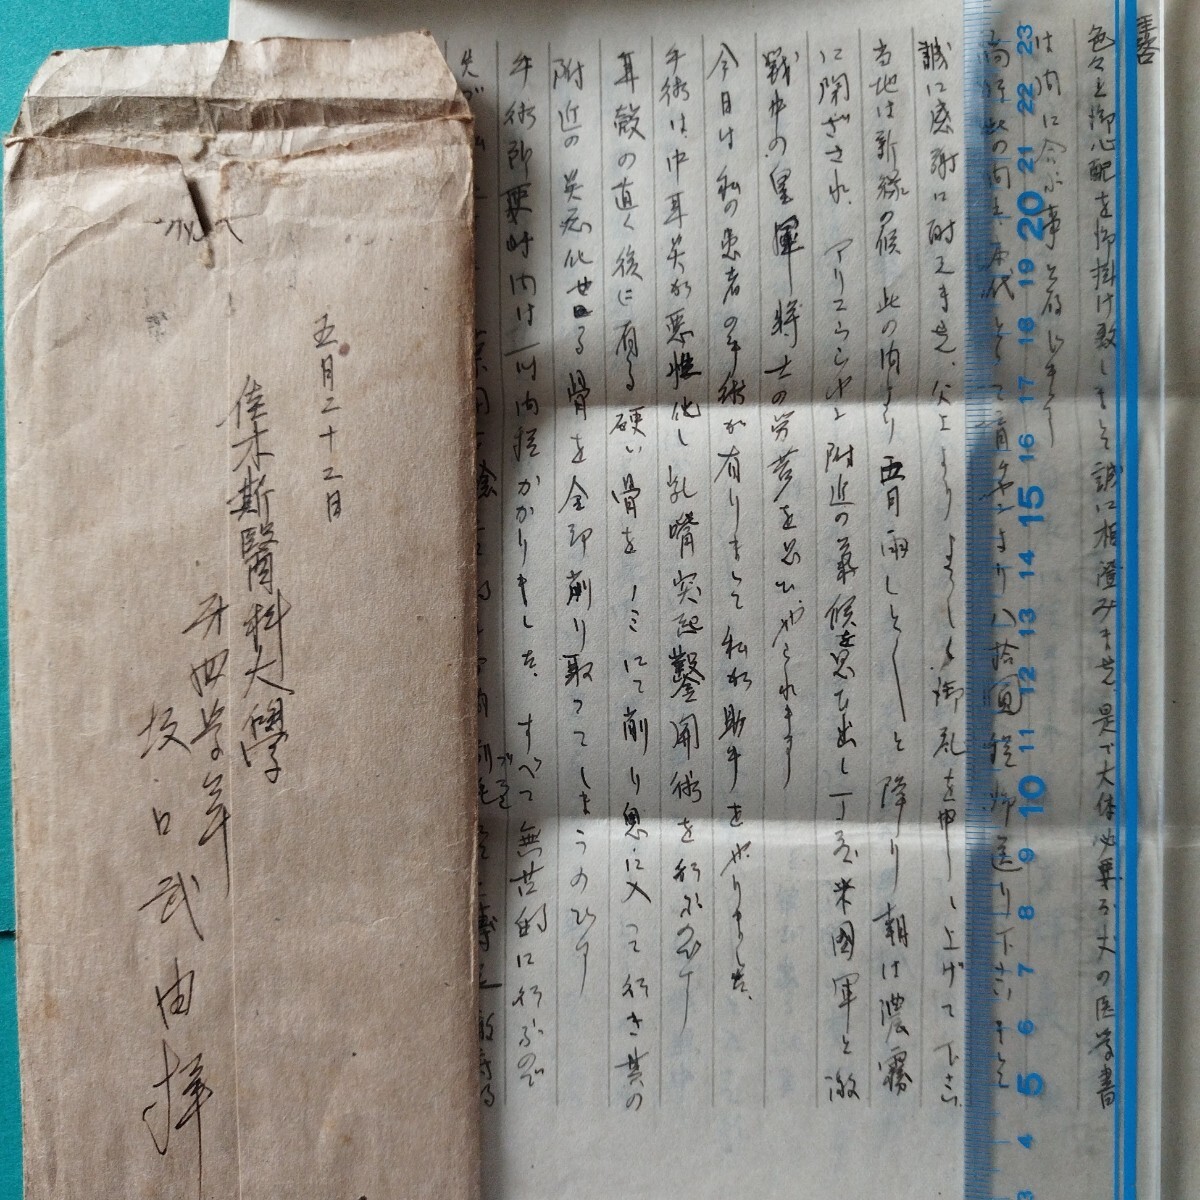 拝啓
色々と御心配を御掛け致しまして誠に相澄みません。是で大体必要な丈の医学書
は間に合ふ事と存じます
八拾圓程御送り下さいまして
誠に感謝に耐えません、父上よりよろしく御礼を申し上げて下さい
当地は新緑の候 此の内より五月雨しと〱と降り朝は濃霧
に閉ざされ、アリューシャン附近の気候を思ひ出し一丁度米國軍と激
戦中の皇軍将士の労苦を思ひやられます
今日は私の患者の手術が有りまして私が助手をやりました、
手術は中耳炎が悪性化し乳嘴突起鑿開術を行ふのです
耳殻の直ぐ後に有る硬い骨をノミにて削り奥に入って行き其の
附近の炎症化せる骨を全部削り取ってしまうのです
手術所要時間は一時間程かかりました、すべて無苦的に行ふので
五月二十二日
佳木斯醫科大學
第四学年
坂口武由拝
23
22
21
20
19
18
17
16
15
14
13
12
11
10
9
8
7
6
5
4
3